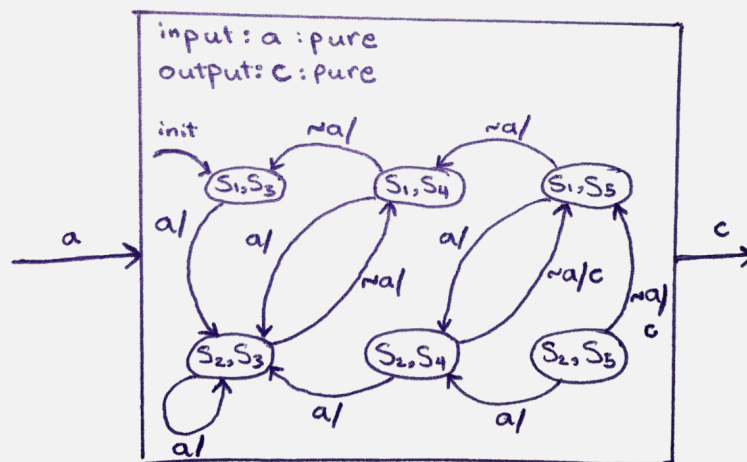 input: a : pure
output: c : pure
init
~a/
~a/
S₁,S₃
S₁,S₄
S₁,S₅
a/
a/
a/
a
c
~a/
~a/c
~a/
c
S₂,S₃
S₂,S₄
S₂,S₅
a/
a/
a/